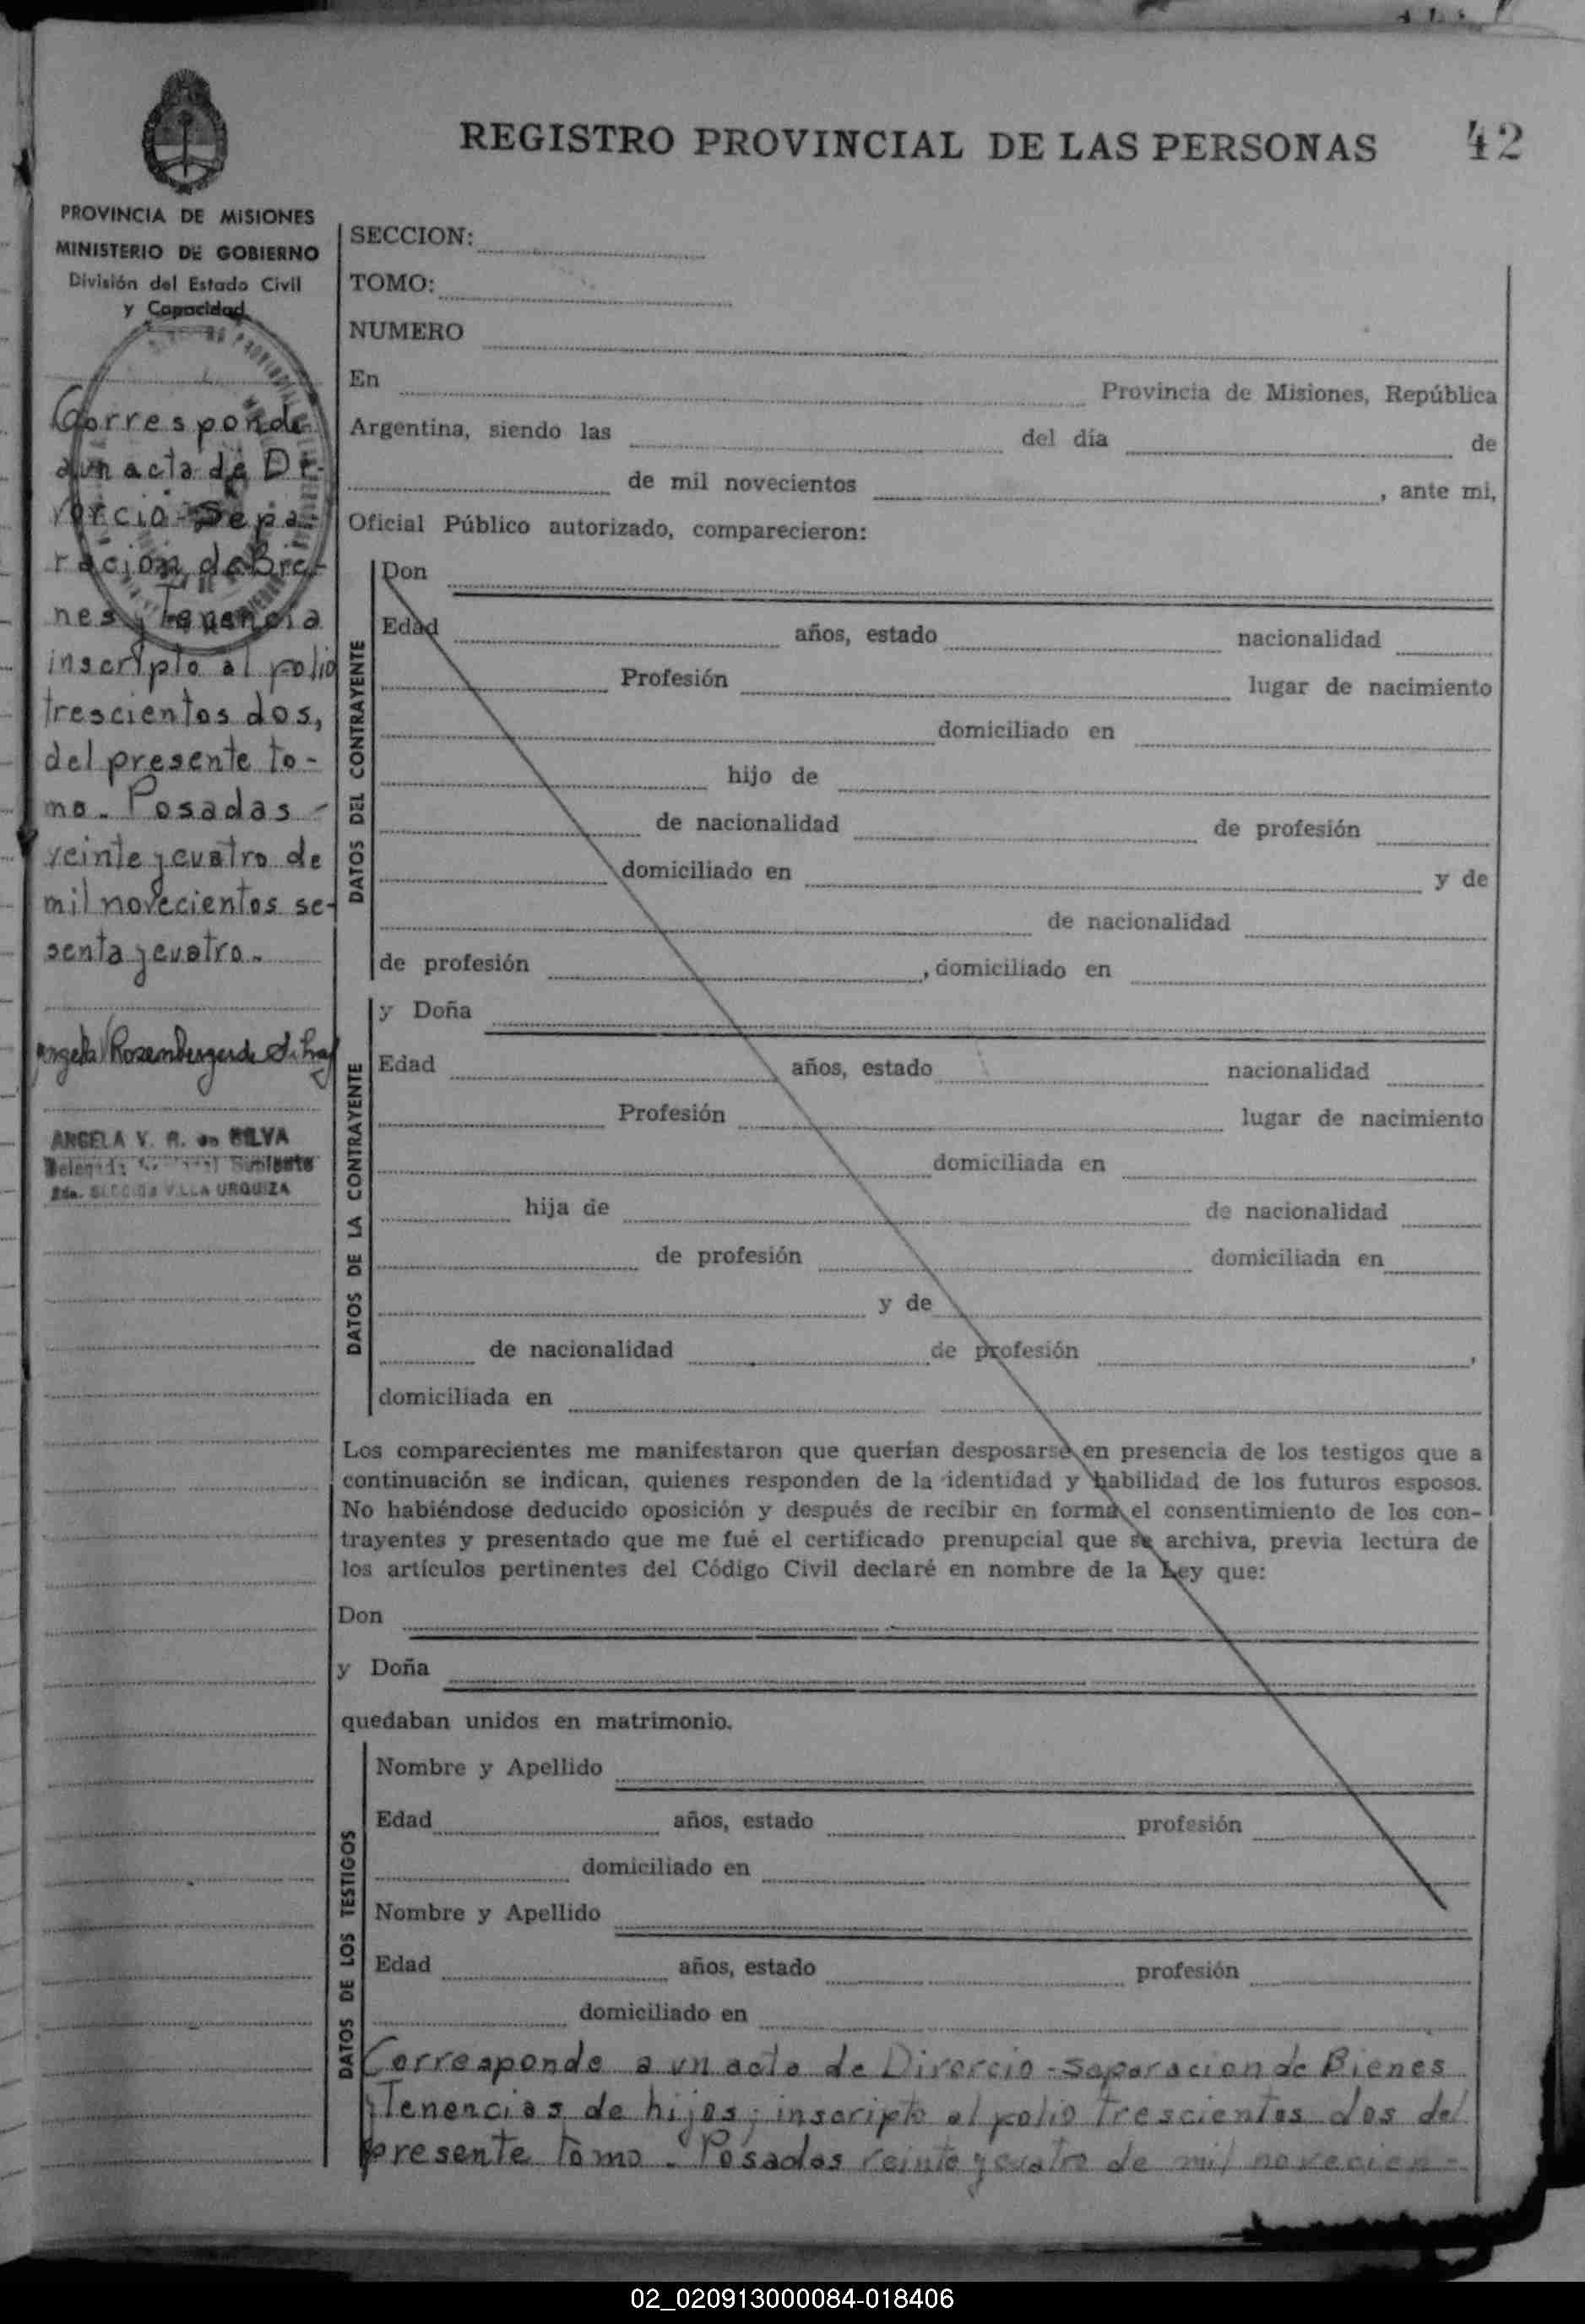 REGISTRO PROVINCIAL DE LAS PERSONAS 42
PROVINCIA DE MISIONES
MINISTERIO DE GOBIERNO
División del Estado Civil
y Capacidad
Corresponde
a un acta de Di-
vorcio-Sepa-
racion de Bie-
nes y Tenencia
inscripto al folio
trescientos dos,
del presente to-
mo. Posadas
veinte y cuatro de
mil novecientos se-
senta y cuatro.
Angela Rosenberger de Silva
ANGELA V. R. de SILVA
VILLA URQUIZA
SECCION:
TOMO:
NUMERO
En Provincia de Misiones, República
Argentina, siendo las del día de
de mil novecientos , ante mi,
Oficial Público autorizado, comparecieron:
DATOS DEL CONTRAYENTE
Don
Edad años, estado nacionalidad
Profesión lugar de nacimiento
domiciliado en
hijo de
de nacionalidad de profesión
domiciliado en y de
de nacionalidad
de profesión , domiciliado en
DATOS DE LA CONTRAYENTE
y Doña
Edad años, estado nacionalidad
Profesión lugar de nacimiento
domiciliada en
hija de de nacionalidad
de profesión domiciliada en
y de
de nacionalidad de profesión ,
domiciliada en
Los comparecientes me manifestaron que querían desposarse en presencia de los testigos que a
continuación se indican, quienes responden de la identidad y habilidad de los futuros esposos.
No habiéndose deducido oposición y después de recibir en forma el consentimiento de los con-
trayentes y presentado que me fué el certificado prenupcial que se archiva, previa lectura de
los artículos pertinentes del Código Civil declaré en nombre de la Ley que:
Don
y Doña
quedaban unidos en matrimonio.
DATOS DE LOS TESTIGOS
Nombre y Apellido
Edad años, estado profesión
domiciliado en
Nombre y Apellido
Edad años, estado profesión
domiciliado en
Corresponde a un acta de Divorcio-separacion de Bienes
y Tenencias de hijos; inscripto al folio trescientos dos del
presente tomo. Posadas veinte y cuatro de mil novecien-
02_020913000084-018406